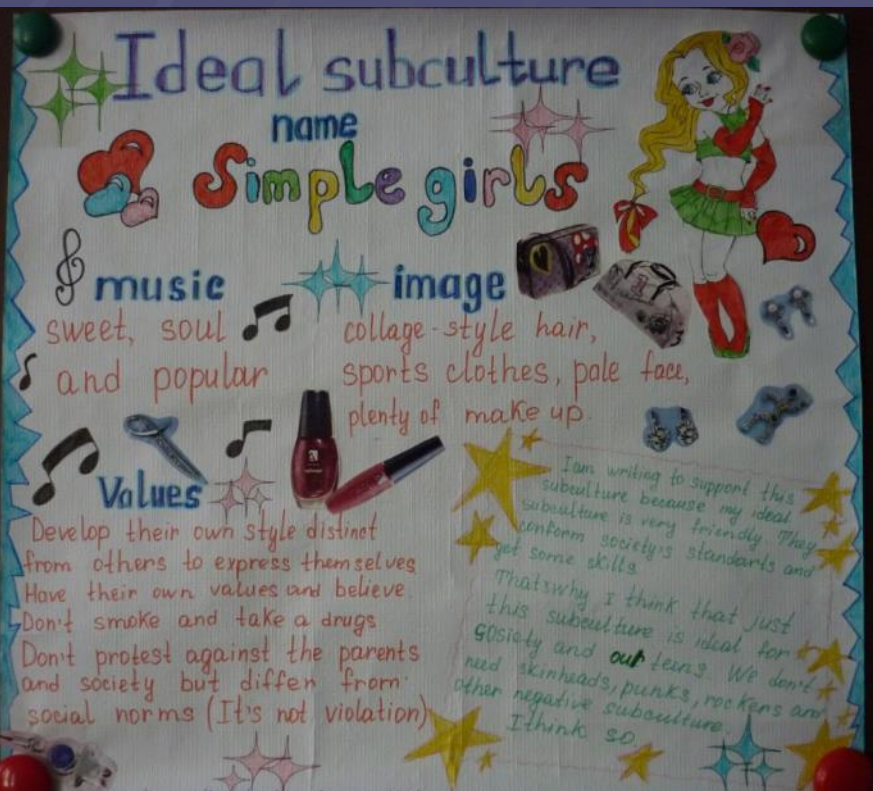 Ideal subculture
name
Simple girls
music
sweet, soul
and popular
image
collage-style hair,
sports clothes, pale face,
plenty of make up.
Values
Develop their own style distinct
from others to express themselves
Have their own values and believe.
Don't smoke and take a drugs
Don't protest against the parents
and society but differ from
social norms (It's not violation)
I am writing to support this
subculture because my ideal
subculture is very friendly. They
conform society's standarts and
get some skills.
Thatswhy I think that just
this subculture is ideal for
sosiety and our teens. We don't
need skinheads, punks, rockers and
other negative subculture.
I think so.